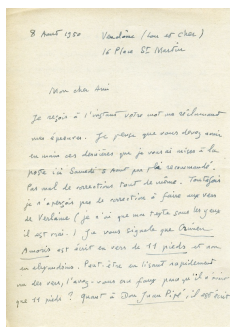 8 Août 1950 Vendôme (Loir et Cher)
16 Place St Martin
Mon cher Ami
Je reçois à l'instant votre mot me réclamant
mes épreuves. Je pense que vous devez avoir
en main ces dernières que je vous ai mises à la
poste ici Samedi 5 Aout par pli recommandé.
Pas mal de corrections tout de même. Toutefois
je n'aperçois pas de correction à faire aux vers
de Verlaine (je n'ai que mon texte sous les yeux
il est vrai.) Je vous signale que Crimen
Amoris est écrit en vers de 11 pieds et non
en alexandrins. Peut-être en lisant rapidement
un des vers, l'avez-vous cru faux parce qu'il n'avait
que 11 pieds ? Quant à Don Juan Pipé, il est écrit